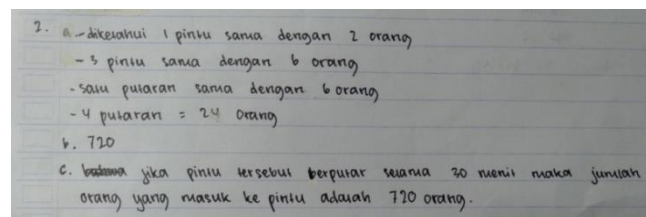 2. a. - diketahui 1 pintu sama dengan 2 orang
- 3 pintu sama dengan 6 orang
- satu putaran sama dengan 6 orang
- 4 putaran = 24 orang
b. 720
c. jika pintu tersebut berputar selama 30 menit maka jumlah
orang yang masuk ke pintu adalah 720 orang.